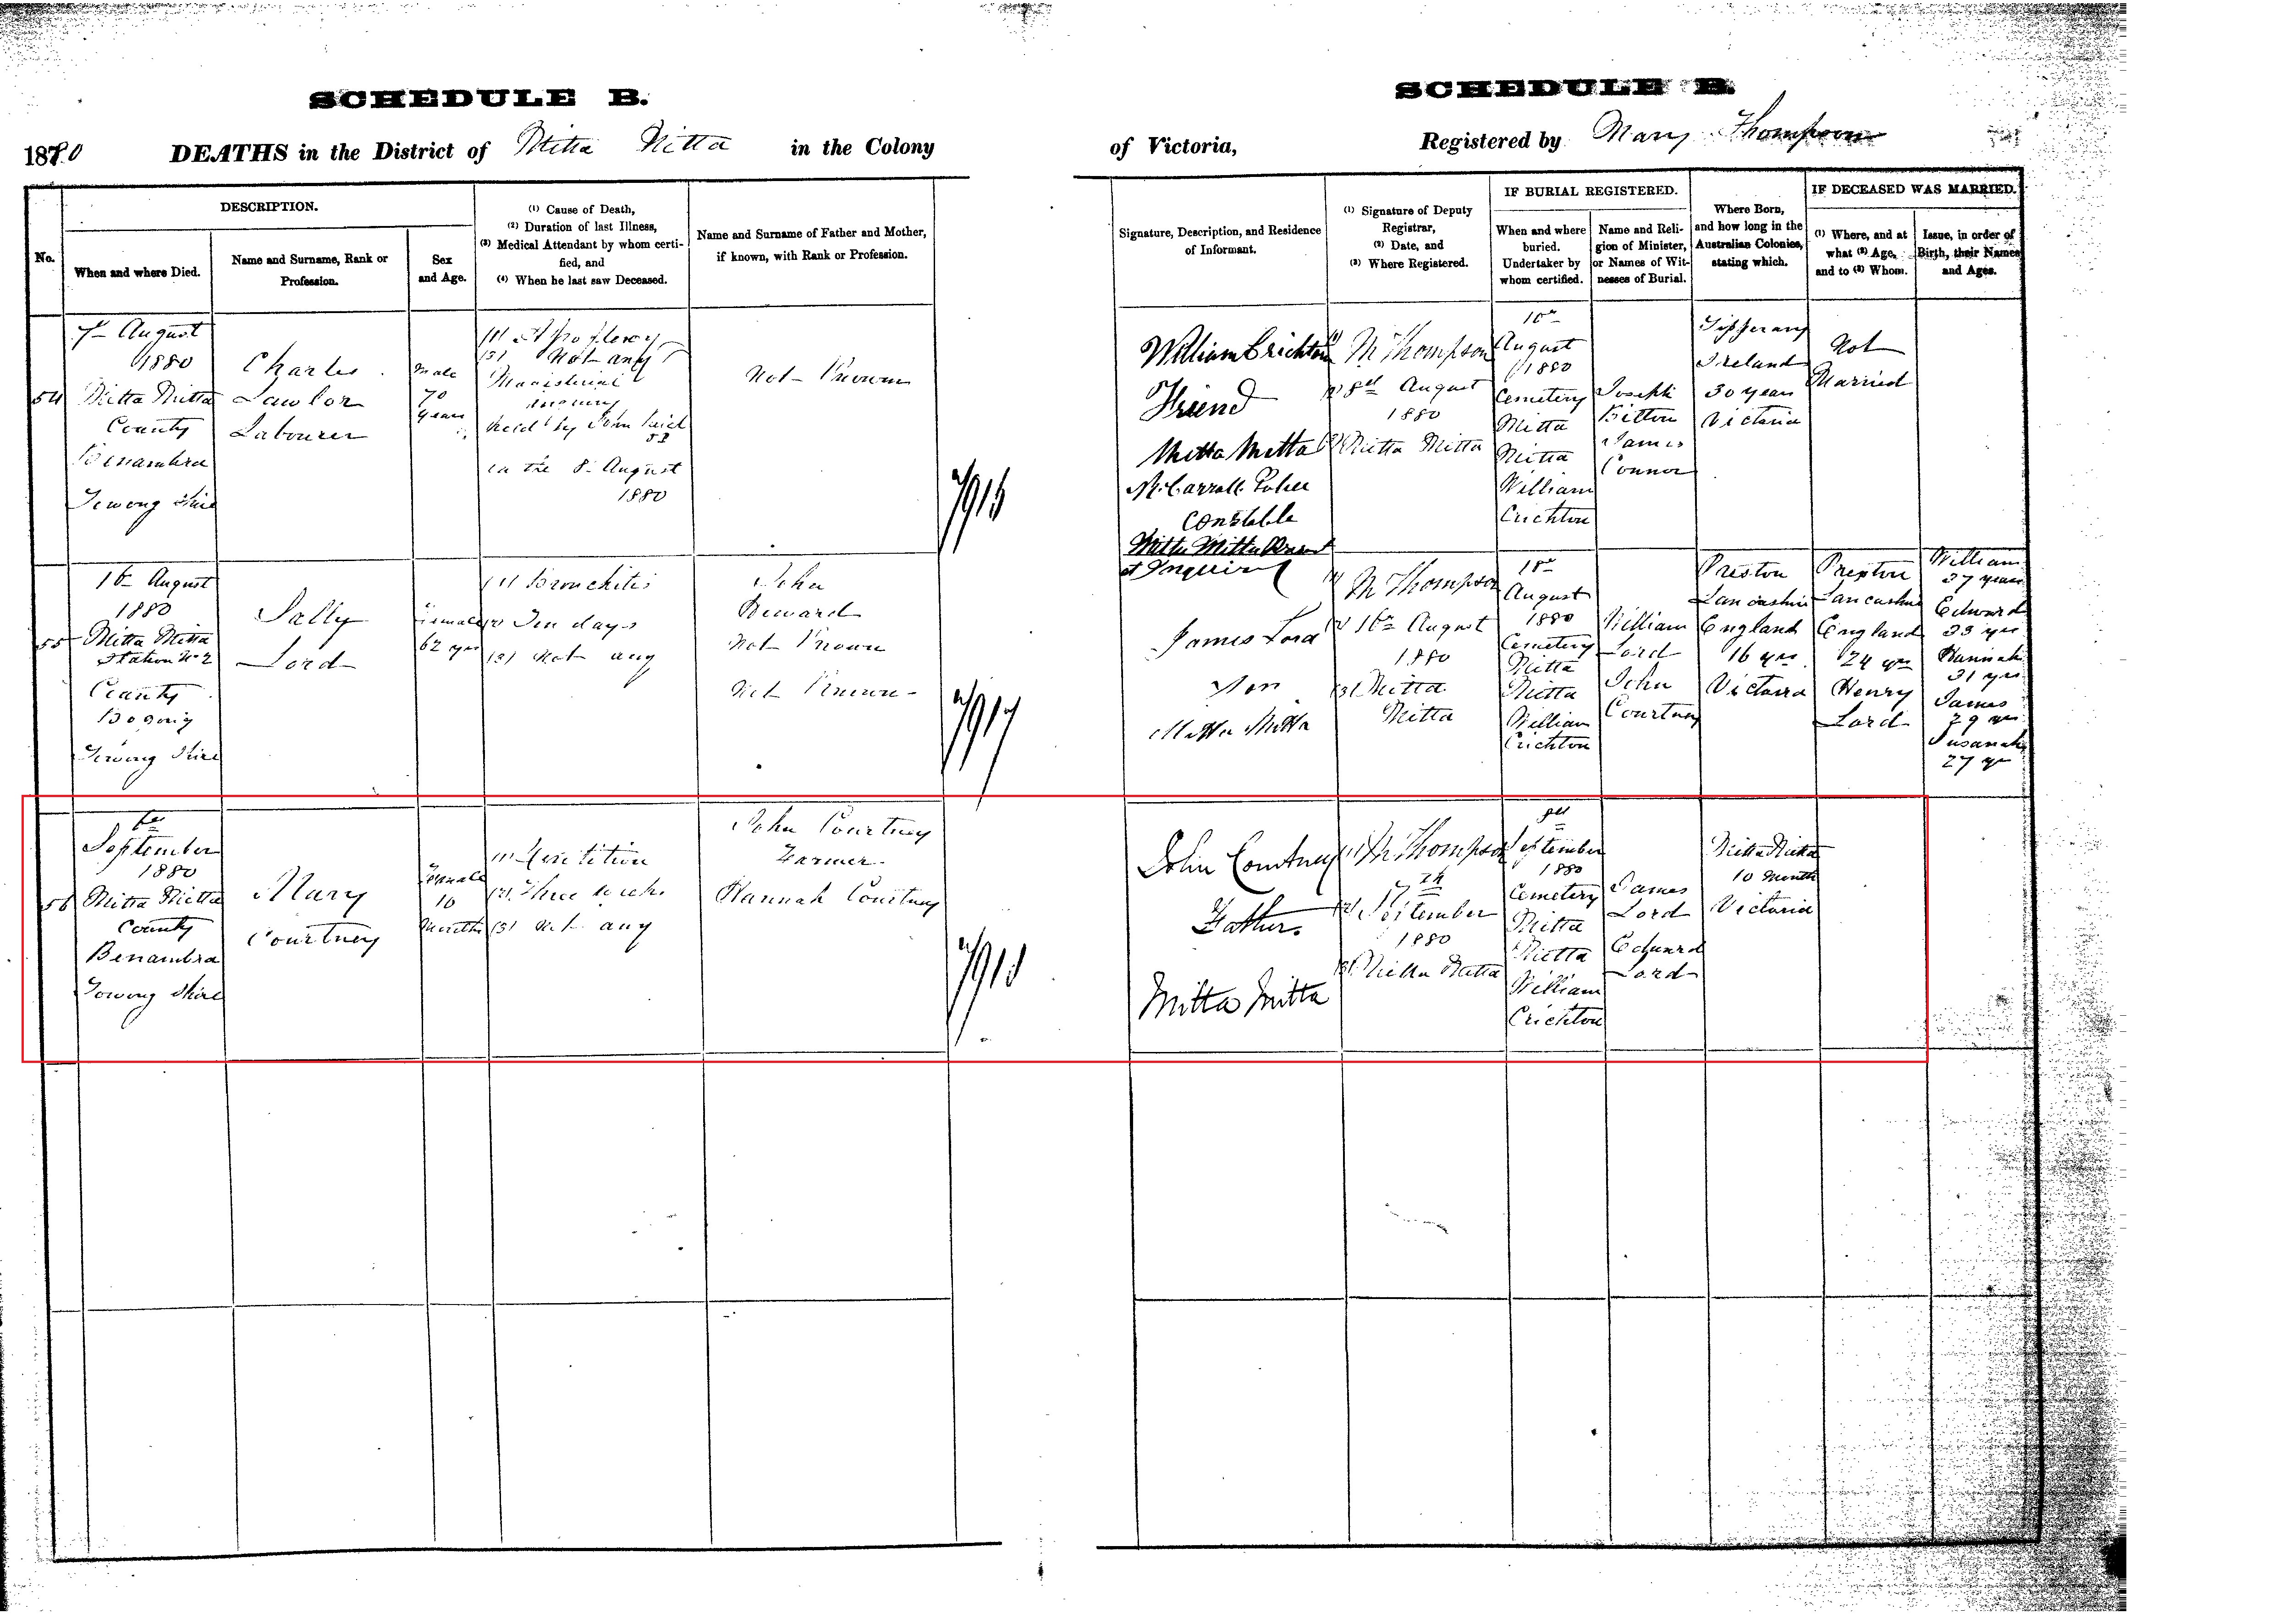 SCHEDULE B.
SCHEDULE B.
1880 DEATHS in the District of Mitta Mitta in the Colony
of Victoria, Registered by Mary Thompson
No.
DESCRIPTION.
When and where Died.
Name and Surname, Rank or
Profession.
Sex
and Age.
(1) Cause of Death,
(2) Duration of last Illness,
(3) Medical Attendant by whom certi-
fied, and
(4) When he last saw Deceased.
Name and Surname of Father and Mother,
if known, with Rank or Profession.
Signature, Description, and Residence
of Informant.
(1) Signature of Deputy
Registrar,
(2) Date, and
(3) Where Registered.
IF BURIAL REGISTERED.
When and where
buried.
Undertaker by
whom certified.
Name and Reli-
gion of Minister,
or Names of Wit-
nesses of Burial.
Where Born,
and how long in the
Australian Colonies,
stating which.
IF DECEASED WAS MARRIED.
(1) Where, and at
what (2) Age,
and to (3) Whom.
Issue, in order of
Birth, their Names
and Ages.
54
7th August
1880
Mitta Mitta
County
Benambra
Towong Shire
Charles
Lawlor
Labourer
Male
70
years
(3) Not any
Magisterial
inquiry
held by John
on the 8th August
1880
Not Known
William Crichton
Friend
Mitta Mitta
Constable
Mitta Mitta
M Thompson
(2) 8th August
1880
(3) Mitta Mitta
10th
August
1880
Cemetery
Mitta
Mitta
William
Crichton
Joseph
James
Connor
Tipperary
Ireland
30 years
Victoria
Not
Married
55
16th August
1880
Mitta Mitta
Station No 2
County
Bogong
Towong Shire
Sally
Lord
Female
62 yrs
(1) Bronchitis
(2) Ten days
(3) Not any
John
Not Known
Not Known
James Lord
Son
Mitta Mitta
(1) M Thompson
(2) 16th August
1880
(3) Mitta
Mitta
18th
August
1880
Cemetery
Mitta
Mitta
William
Crichton
William
Lord
John
Courtney
Preston
Lancashire
England
16 yrs
Victoria
Preston
Lancashire
England
24 yrs
Henry
Lord
William
37 years
Edward
33 yrs
Hannah
31 yrs
James
29 yrs
Susanah
27 yrs
56
6th
September
1880
Mitta Mitta
County
Benambra
Towong Shire
Mary
Courtney
Female
10
Months
(1) Dentition
(2) Three weeks
(3) Not any
John Courtney
Farmer
Hannah Courtney
John Courtney
Father.
Mitta Mitta
(1) M Thompson
(2) September
1880
(3) Mitta Mitta
September
1880
Cemetery
Mitta
Mitta
William
Crichton
James
Lord
Edward
Lord
Mitta Mitta
10 Months
Victoria
7917
7918